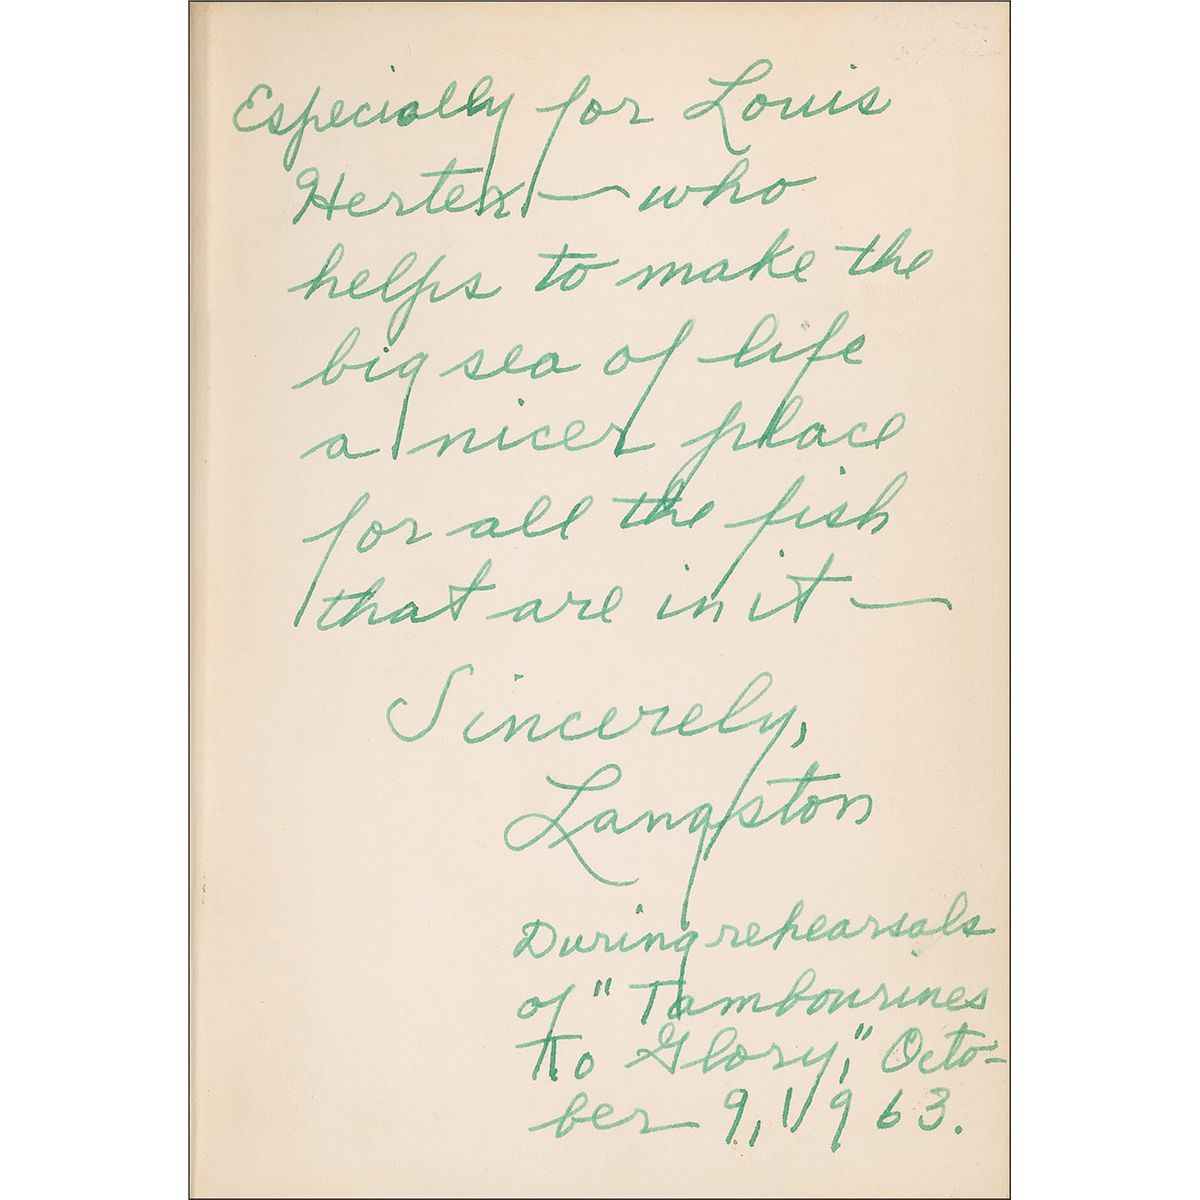 Especially for Louis
Herter — who
helps to make the
big sea of life
a nicer place
for all the fish
that are in it —
Sincerely,
Langston
During rehearsals
of "Tambourines
To Glory," Octo-
ber 9, 1963.